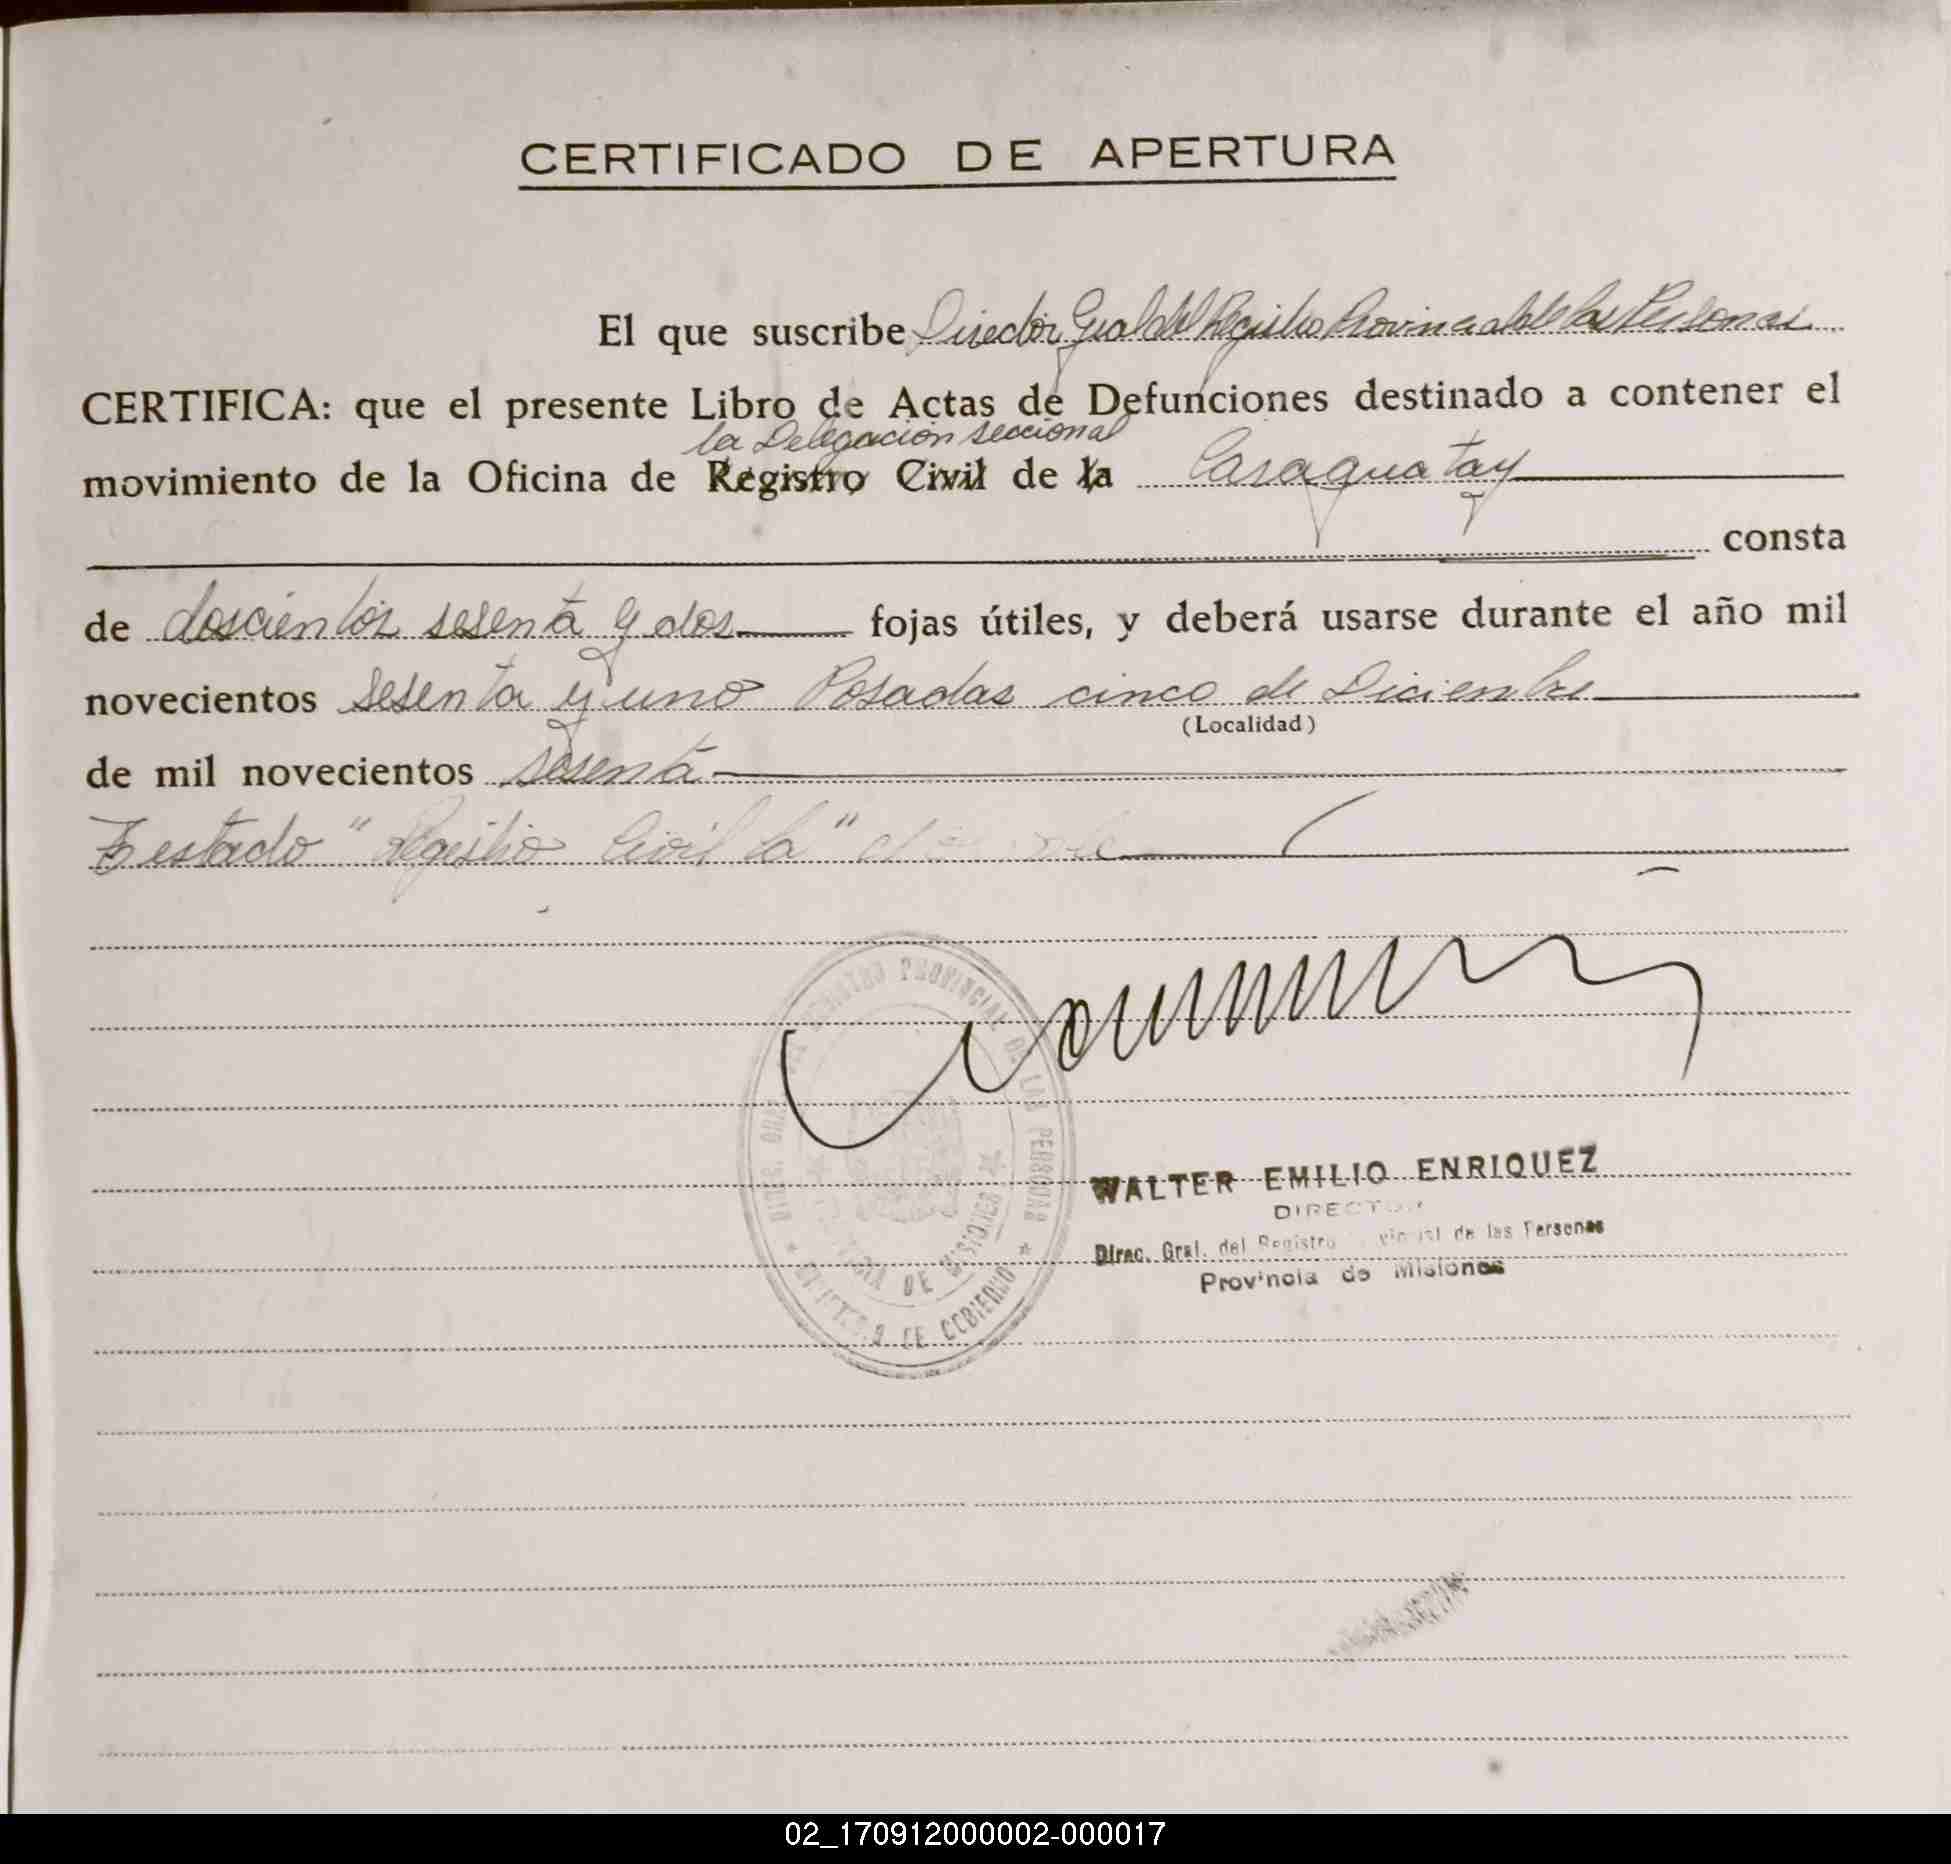 CERTIFICADO DE APERTURA
El que suscribe Director Gral del Registro Provincial de las Personas
CERTIFICA: que el presente Libro de Actas de Defunciones destinado a contener el
la Delegación Seccional
movimiento de la Oficina de Registro Civil de la Caraguatay
consta
de doscientos sesenta y dos fojas útiles, y deberá usarse durante el año mil
novecientos sesenta y uno Posadas cinco de Diciembre
(Localidad)
de mil novecientos sesenta
Testado "Registro Civil la"
REGISTRO PROVINCIAL DE LAS PERSONAS
DE MISIONES
DE GOBIERNO
WALTER EMILIO ENRIQUEZ
DIRECTOR
Direc. Gral. del Registro Provincial de las Personas
Provincia de Misiones
02_170912000002-000017